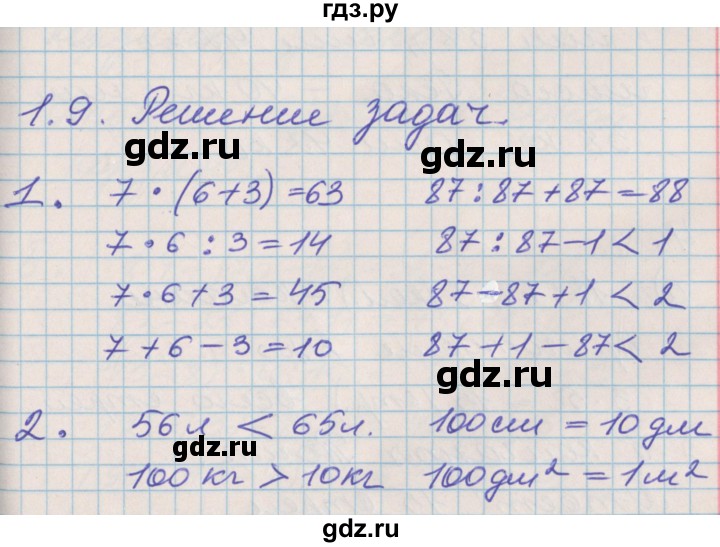 гдз.ру
1.9. Решение задач.
gdz.ru gdz.ru
1. 7 · (6+3) = 63 87 : 87 + 87 = 88
7 · 6 : 3 = 14 87 : 87 - 1 < 1
7 · 6 + 3 = 45 87 - 87 + 1 < 2
7 + 6 - 3 = 10 87 + 1 - 87 < 2
gdz.ru gdz.ru
2. 56 л < 65 л. 100 см = 10 дм
100 кг > 10 кг 100 дм² = 1 м²
gdz.ru gdz.ru
gdz.ru